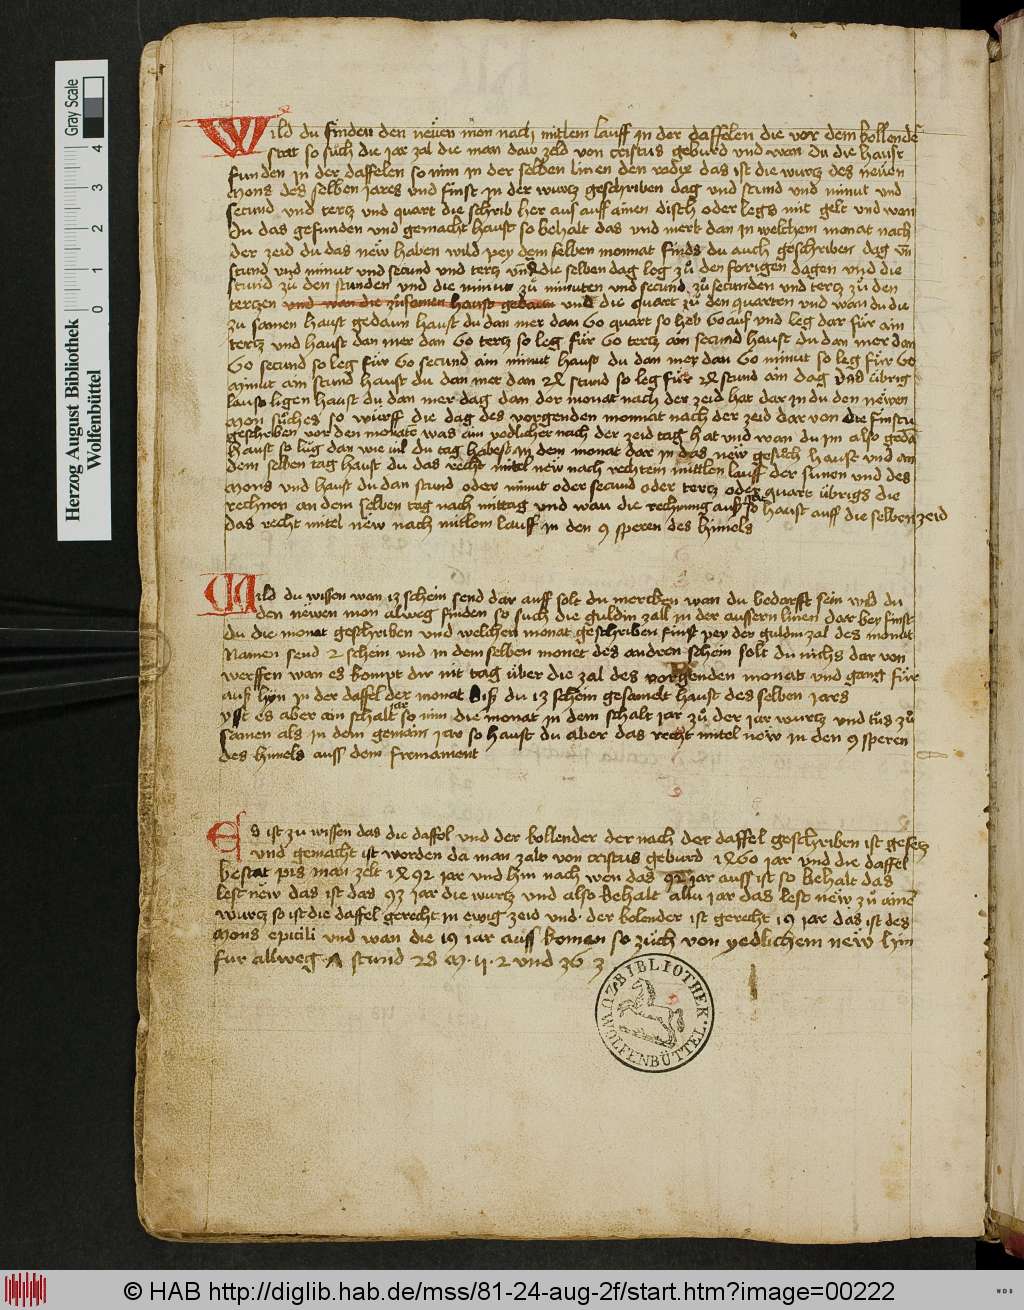 Wild du finden den newen mon nach mitlem lauff in der daffelen die vor dem kollender
stat so such die jar zal die man daw zeld von cristus geburd und wan du die haust
funden in der daffelen so nim in der selben linen den radix das ist die wurcz des newen
mons des selben jares und finst in der wurcz geschriben dag und stund und minut und
secund und tercz und quart die schrib her aus auff ainen disch oder legs mit gelt und wan
du das gefunden und gemacht haust so behalt das und merk dan in welchem monat nach
der zeid du das new haben wild pey dem selben monnat finds du auch geschriben dag un
stund und minut und secund und tercz und die selben dag leg zu den forigen dagen und die
stund zu den stunden und die minut zu minuten und secund zu secunden und tercz zu den
terczen und wan die zusamen haust gedaun und die quart zu den quarten und wan du du
zu samen haust gedaun haust du dan mer dan 60 quart so heb 60 auf und leg dar für ain
tercz und haust dan mer dan 60 tercz so leg für 60 tercz ain secund haust du dan mer dan
60 secund so leg für 60 secund ain minut haust du dan mer dan 60 minut so leg für 60
minut ain stund haust du dan mer dan 24 stund so leg für 24 stund ain dag das übrig
laus ligen haust du dan mer dag dan der monat nach der zeid hat dar in du den newen
mon suches so würff die dag des vorgenden monnat nach der zeid dar von die finstu
geschriben vor den monate was ain yedlicher nach der zeid tag hat und wan du im also gedan
haust so lug dan wie vil du tag habest in dem monat dar in das new gesuch haust und an
dem selben tag haust du das recht mitel new nach rechtem mittlen lauff der sunen und des
mons und haust du dan stund oder minut oder secund oder tercz oder quart übrigs die
rechnen an dem selben tag nach mittag und wan die rechnung auß so haust auff die selben zeid
das recht mitel new nach mitlem lauff in den 9 speren des himels
Wild du wissen wan 13 schein send dar auff solt du mercken wan du bedarfft sein wild du
den newen mon alweg finden so such die guldin zall in der aussern linen dar bey finst
du die monat geschriben und welchen monat geschriben finst pey der guldin zal des monat
namen send 2 schein und in dem selben monet des andren schein solt du nichs dar von
werffen wan es kompt dir nit tag über die zal des vorgenden monatz und gang für
auß hin in der daffel der monat biß du 13 schein gesamelt haust des selben jares
yst es aber ain schalt jar so nim die monat in dem schalt jar zu der jar wurcz und tus zu
samen als in dem gemain jar so haust du aber das recht mitel new in den 9 speren
des himels auss dem firmament
Es ist zu wissen das die daffel und der kollender der nach der daffel geschriben ist gesecz
und gemacht ist worden da man zalt von cristus geburd 1460 jar und die daffel
bestat pis man zelt 1492 jar und hin nach wen das 92 jar auss ist so behalt das
lest new das ist das 93 jar die wurtz und also behalt allu jar das lest new zu ainer
wurcz so ist die daffel gerecht in ewig zeid und der kolender ist gerecht 19 jar das ist des
mons epicili und wan die 19 jar auff komen so züch von yedlichem new hin
für allweg 1 stund 28 m. 11. 2 und 36 3
BIBLIOTHEK
ZU WOLFENBÜTTEL
Herzog August Bibliothek
Wolfenbüttel
Gray Scale
0 1 2 3 4
© HAB http://diglib.hab.de/mss/81-24-aug-2f/start.htm?image=00222
WDB